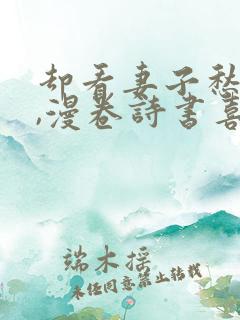 却看妻子愁
,漫卷詩書喜
端木摇
未经同意禁止转载